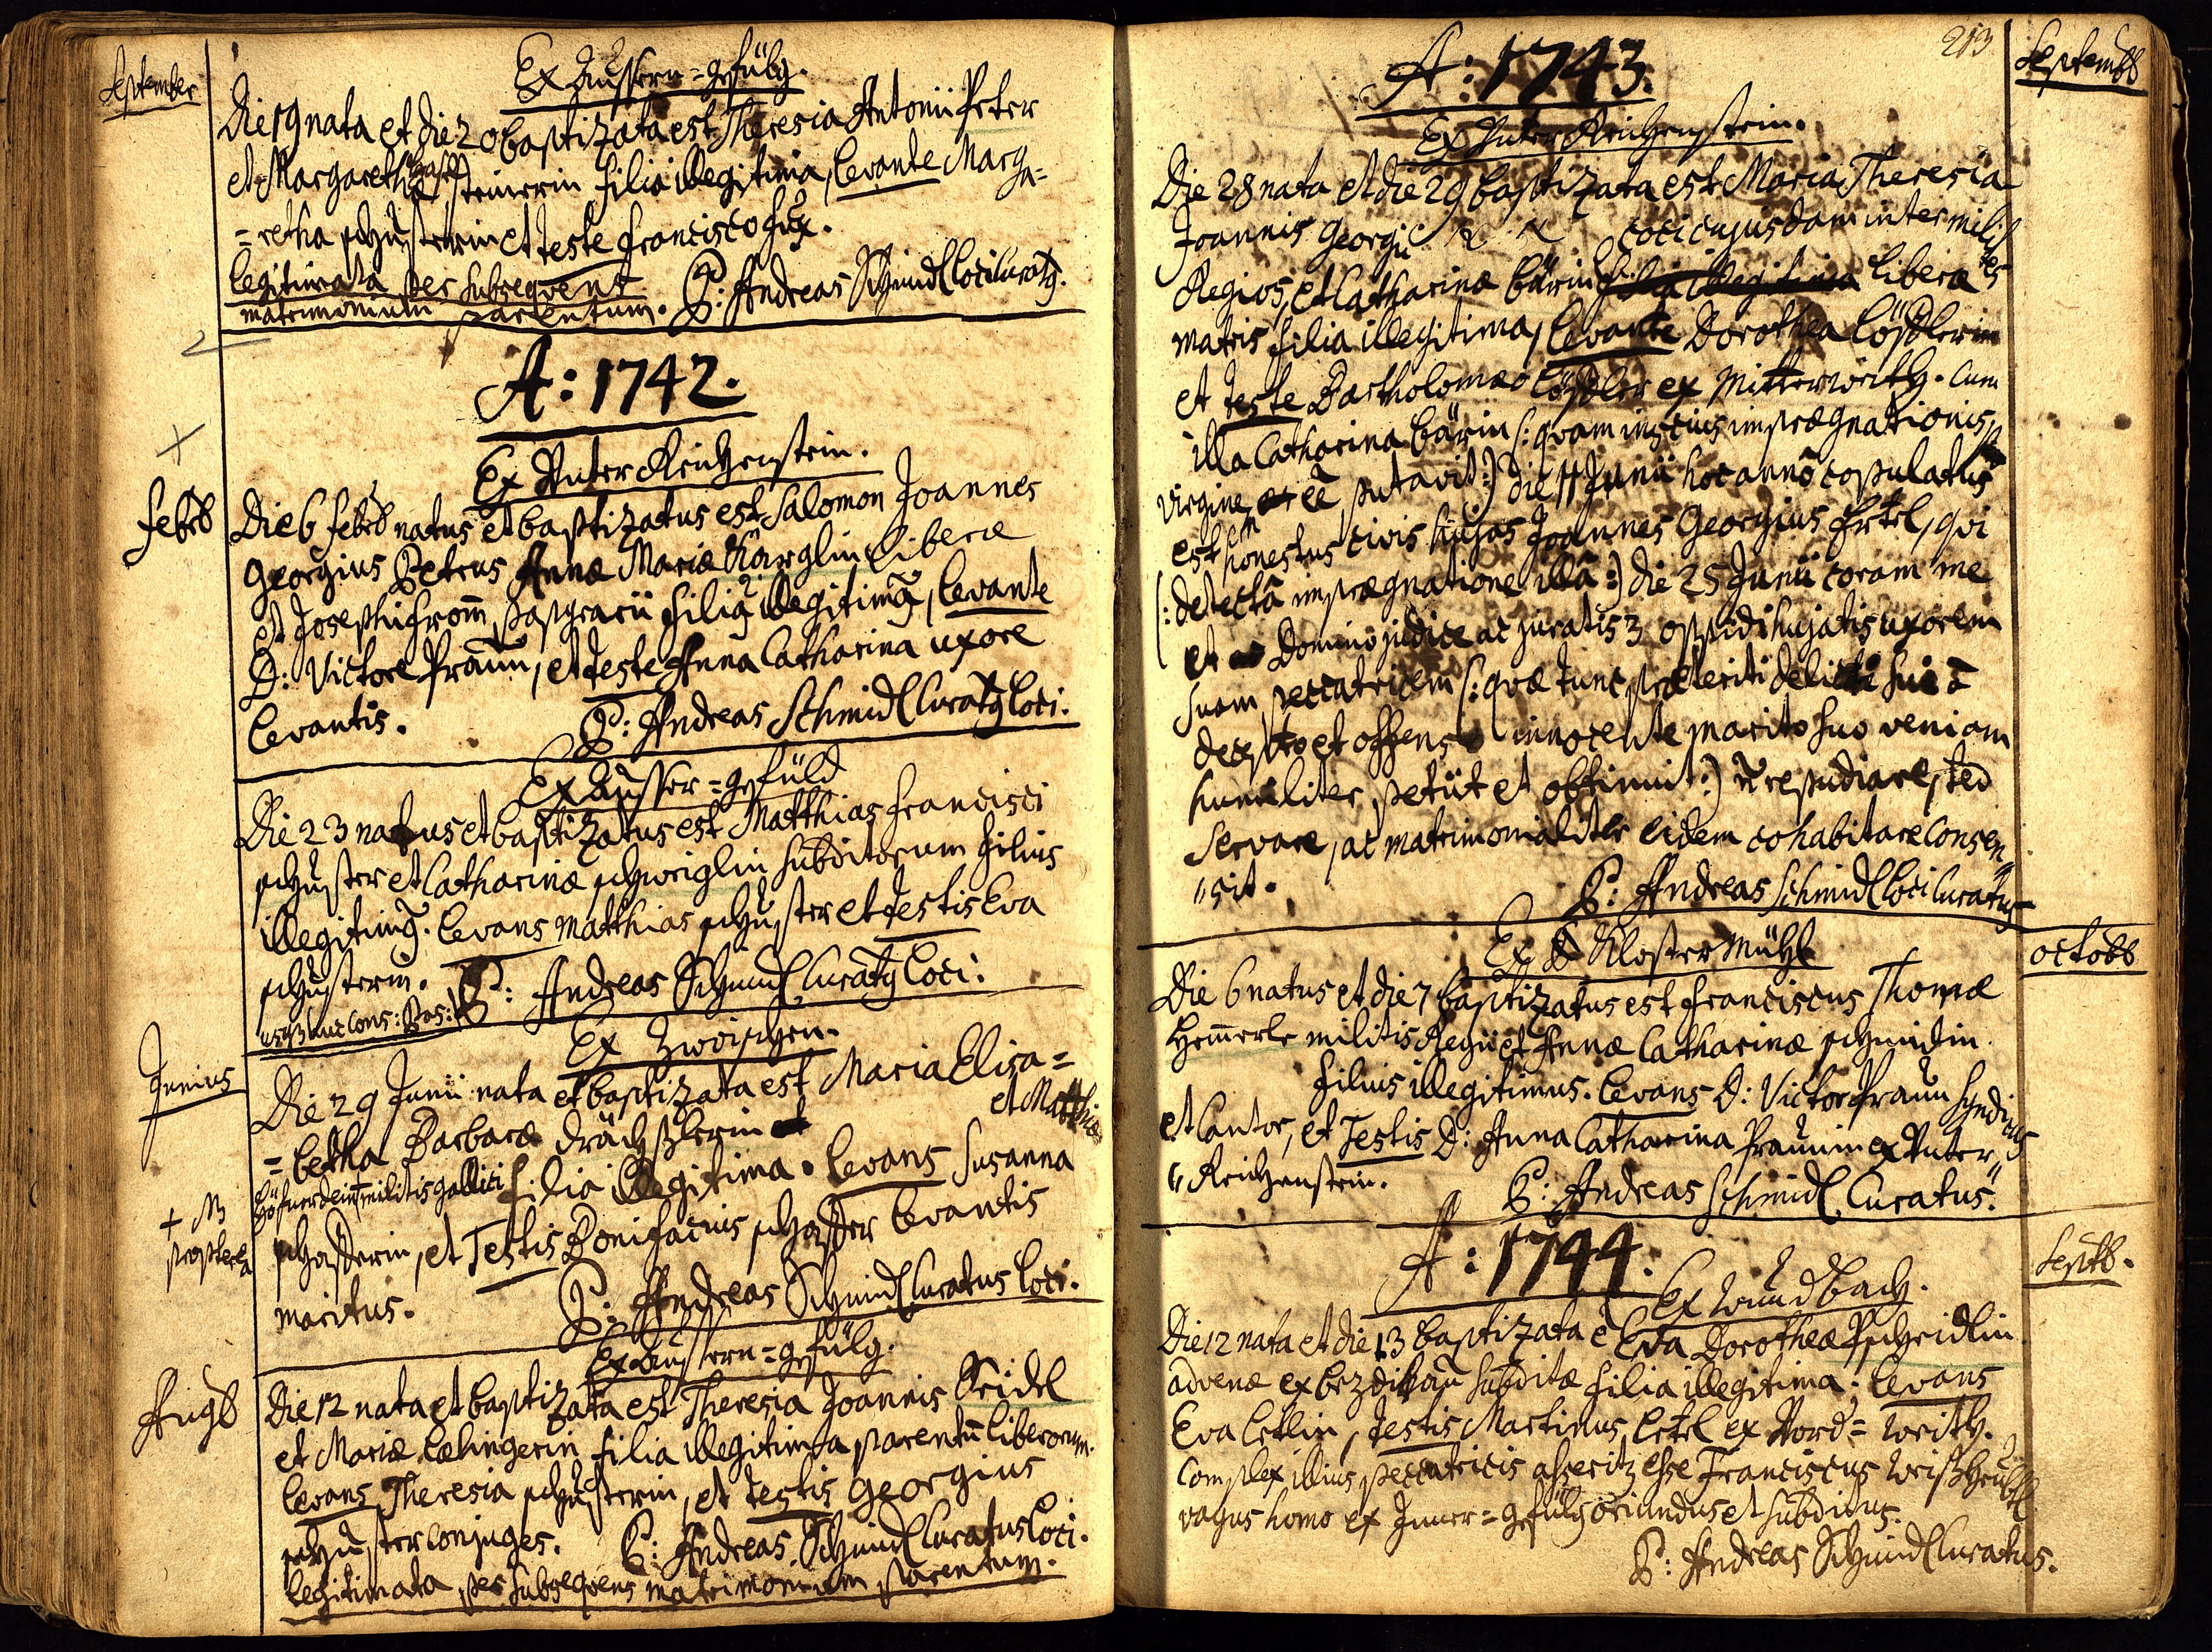 September
Ex Aussern=gefülg.
Die 19 nata et die 20 baptizata est Theresia Antonii Peter
et Margarethæ steinerin filia illegitima, levante Marga=
=retha schusterin et teste Francisco Fux.
legitimata per subsequens
matrimonium parentum. P: Andreas Schmidl loci curatg.
A: 1742.
Ex Unter Reichenstein.
Febrb
Die 6 Febrb natus et baptizatus est Salomon Joannes
Georgius Petrus Annæ Mariæ Karglin liberæ
et Josephi From̄ filiq illegitimq, levante
D: Victore Praun, et teste Anna Catharina uxore
levantis. P: Andreas Schmidl Curatg loci.
Ex Ausser=gefüld
Die 23 natus et baptizatus est Matthias Francisci
schuster et Catharinæ schweiglin subditorum filius
illegitimq. levans Matthias schuster et testis Eva
schusterin. P: Andreas Schmidl Curatg loci.
Junius
Ex Zwischen.
Die 29 Junii nata et baptizata est Maria Elisa=
=betha Barbaræ drächslerin et Matthiæ
militis gallici filia illegitima. levans Susanna
+ M
propterea
et Testis Bonifacius levantis
maritus. P: Andreas Schmidl Curatus loci.
Ex Aussern=gefülg.
Augb
Die 12 nata et baptizata est Theresia Joannis Seidel
et Mariæ lehingerin filia illegitima parentū liberorum.
levans Theresia schusterin, et testis Georgius
schuster conjuges. P: Andreas Schmidl Curatus loci.
legitimata per subsequens matrimonium parentum.
213
Septembb
A: 1743.
Ex Unter Reichenstein.
Die 28 nata et die 29 baptizata est Maria Theresia
Joannis Georgii N. N. coci cujusdam inter milites
Regios, et Catharinæ bärin filia illegitima liberæ
matris filia illegitima, levante Dorothea löschlerin
et teste Bartholomæo löschler ex Mitterwerth. Cum
illa Catharina bärin (: qvam inscius imprægnationis,
virginem eē putavit :) die 11 Junii hoc anno copulatus
est honestus civis hujas Joannes Georgius Ertel, qvi
(: detectâ imprægnatione illâ :) die 25 Junii coram me
et Domino judice ac juratis 3 oppidi hujatis uxorem
suam peccatricem (: qvæ tunc præteriti delicti sui â
decepto et offenso innocente marito suo veniam
humiliter petiit et obtinuit :) ñ repudiare, sed
servare, ac matrimonialiter eidem cohabitare consen"
"sit. P: Andreas Schmidl loci Curatus
octobb
Ex Kloster Mühl
Die 6 natus et die 7 baptizatus est Franciscus Thomæ
Hem̄erle militis Regii et Annæ Catharinæ schmidin
filius illegitimus. levans D: Victor Praun Syndicus
et Cantor, et Testis D: Anna Catharina Praunin ex Unter"
"Reichenstein. P: Andreas Schmidl Curatus.
A: 1744.
Septb.
Ex Wundbach.
Die 12 nata et die 13 baptizata ē Eva Dorotheæ Pscheidlin
advenæ ex bezdikau subditæ filia illegitima. levans
Eva Ertlin, testis Martinus Ertel ex Nord=werth.
Complex illius peccatricis asseritz esse Franciscus
vagus homo ex Inner=gefülg oriundus et subditus.
P: Andreas Schmidl Curatus.